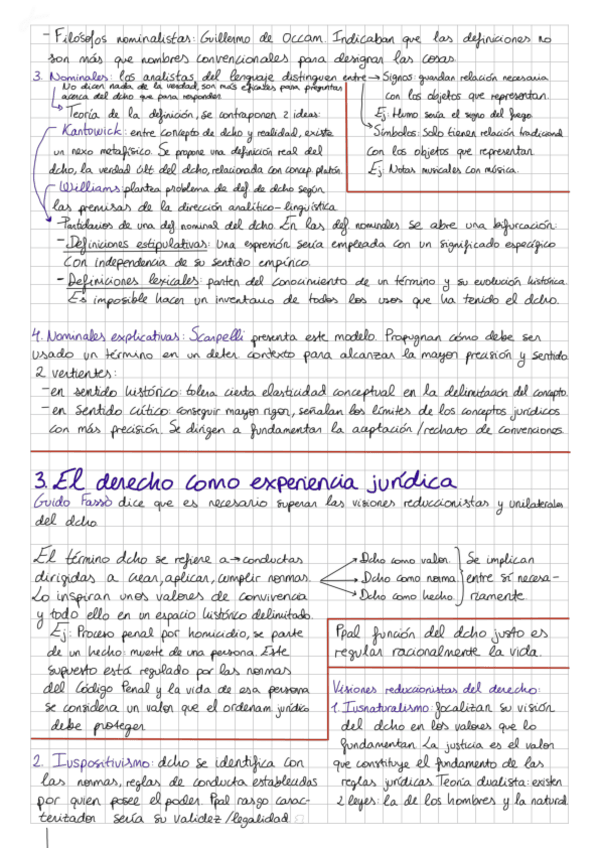 - Filósofos nominalistas: Guillermo de Occam. Indicaban que las definiciones no
son más que nombres convencionales para designar las cosas.
3. Nominales: los analistas del lenguaje distinguen entre → Signos: guardan relación necesaria
con los objetos que representan.
Ej: Humo sería el signo del fuego.
Símbolos: Solo tienen relación tradicional
con los objetos que representan
Ej: Notas musicales con música.
No dicen nada de la verdad, son más eficientes para preguntas
acerca del dcho que para responder.
Teoría de la definición, se contraponen 2 ideas:
Kantowick: entre concepto de dcho y realidad, existe
un nexo metafísico. Se propone una definición real del
dcho, la verdad últ del dcho, relacionada con concep. platón.
Williams plantea problema de def de dcho según
las premisas de la dirección analítico-lingüística
Partidarios de una def nominal del dcho. En las def nominales se abre una bifurcación:
- Definiciones estipulativas: una expresión sería empleada con un significado específico
con independencia de su sentido empírico.
- Definiciones lexicales: parten del conocimiento de un término y su evolución histórica.
Es imposible hacer un inventario de todos los usos que ha tenido el dcho.
4. Nominales explicativas: Scarpelli presenta este modelo. Propugnan cómo debe ser
usado un término en un deter contexto para alcanzar la mayor precisión y sentido.
2 vertientes:
- en sentido histórico: tolera cierta elasticidad conceptual en la delimitación del concepto.
- en sentido crítico: conseguir mayor rigor, señalan los límites de los conceptos jurídicos
con más precisión. Se dirigen a fundamentar la aceptación/rechazo de convenciones.
3. El derecho como experiencia jurídica
Guido Fassò dice que es necesario superar las visiones reduccionistas y unilaterales
del dcho.
El término dcho se refiere a → conductas
dirigidas a crear, aplicar, cumplir normas.
Lo inspiran unos valores de convivencia
y todo ello en un espacio histórico delimitado.
Ej: Proceso penal por homicidio, se parte
de un hecho: muerte de una persona. Este
supuesto está regulado por las normas
del Código Penal y la vida de esa persona
se considera un valor que el ordenam jurídico
debe proteger
→ Dcho como valor.
→ Dcho como norma
→ Dcho como hecho.
Se implican
entre sí necesa-
riamente.
Ppal función del dcho justo es
regular racionalmente la vida.
Visiones reduccionistas del derecho:
1. Iusnaturalismo: focalizan su visión
del dcho en los valores que lo
fundamentan. La justicia es el valor
que constituye el fundamento de las
reglas jurídicas. Teoría dualista: existen
2 leyes: la de los hombres y la natural.
2. Iuspositivismo: dcho se identifica con
las normas, reglas de conducta establecidas
por quien posee el poder. Ppal rasgo carac-
terizador sería su validez/legalidad.